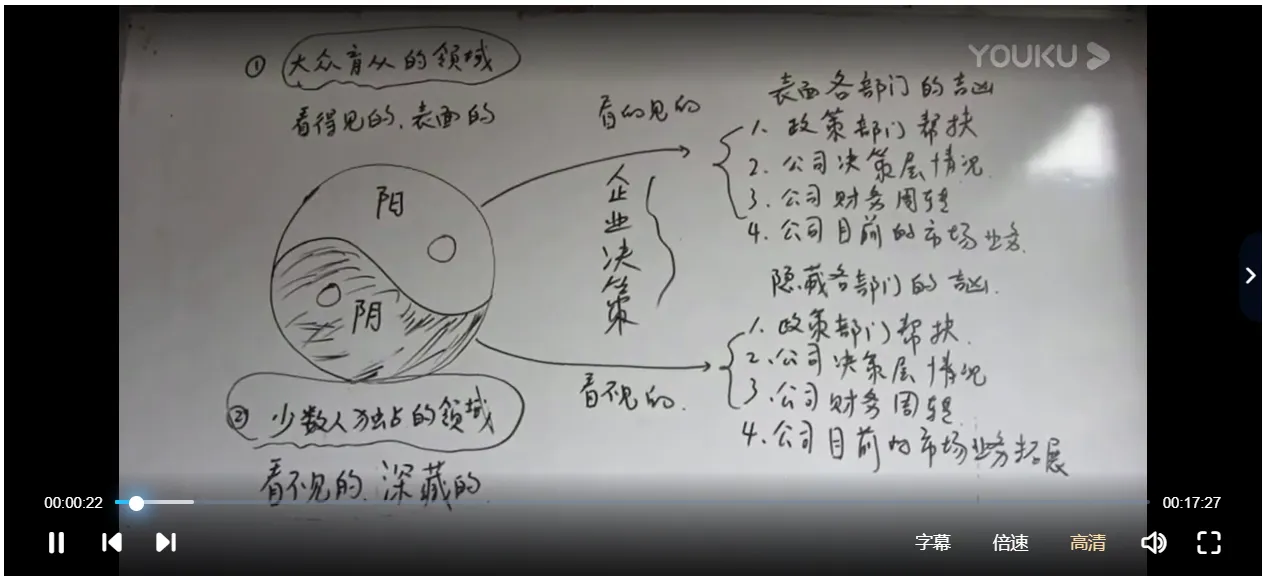 YOUKU
① 大众盲从的领域
看得见的、表面的
阳
阴
② 少数人独占的领域
看不见的、深藏的
看的见的
企业决策
看不见的.
表面各部门的吉凶
1. 政策部门帮扶
2. 公司决策层情况
3. 公司财务周转
4. 公司目前的市场业务
隐藏各部门的吉凶.
1. 政策部门帮扶.
2. 公司决策层情况
3. 公司财务周转
4. 公司目前的市场业务拓展
00:00:22
00:17:27
字幕
倍速
高清